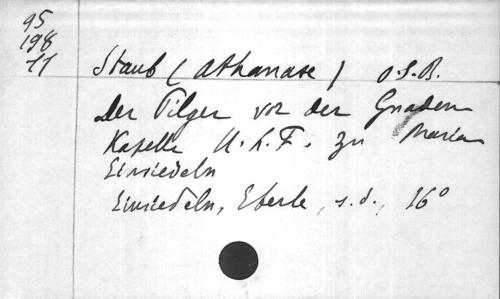 95
198
11
Staub (Athanase) O.S.B.
Der Pilger vor der Gnaden
Kapelle U.L.F. zu Maria
Einsiedeln
Einsiedeln, Eberle, s.d., 16°